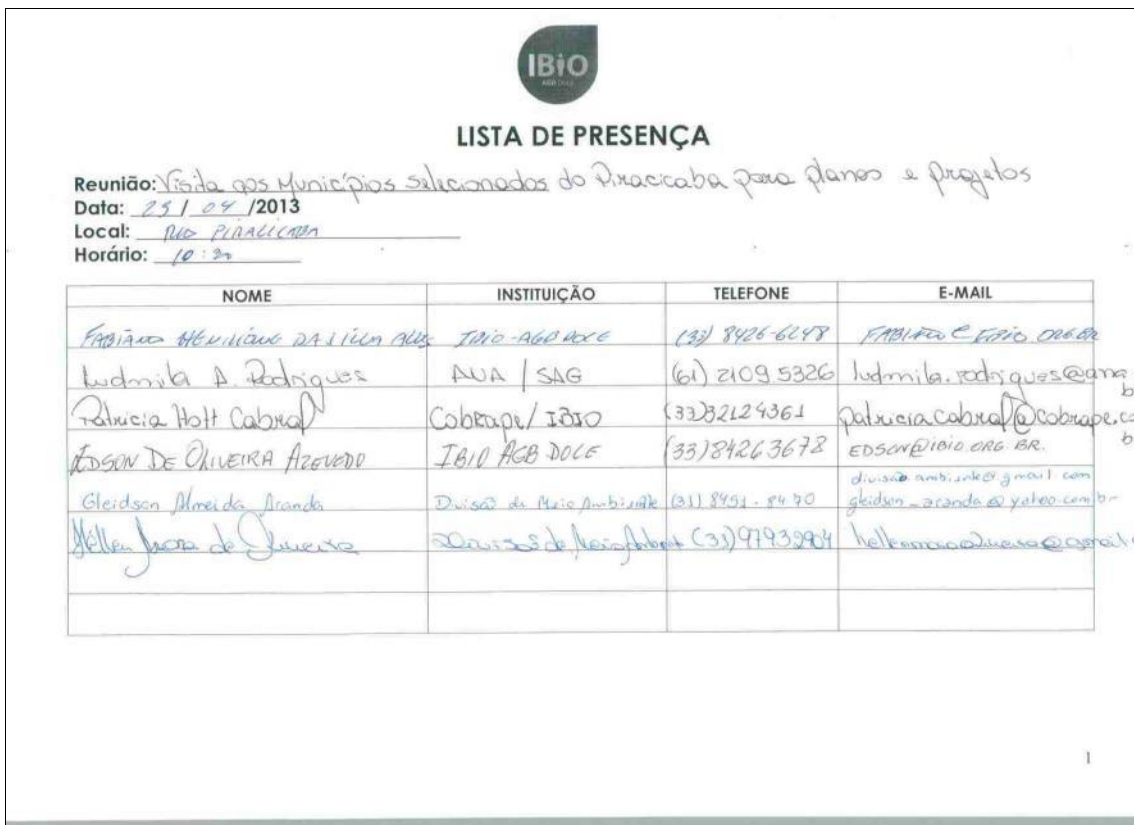 IBiO
AGB Doce
LISTA DE PRESENÇA
Reunião: Visita aos Municípios selecionados do Piracicaba para planos e projetos
Data: 25 / 04 /2013
Local: RIO PIRACICABA
Horário: 10:30
NOME INSTITUIÇÃO TELEFONE E-MAIL
FABIANO HENRIQUE DA SILVA ALVES IBIO-AGB DOCE (33) 8426-6248 FABIANO@IBIO.ORG.BR
Ludmila A. Rodrigues ANA / SAG (61) 2109 5326 ludmila.rodrigues@ana
b
Patricia Hott Cabral Cobrape/ IBIO (33)32124361 patriciacabral@cobrape.co
b
EDSON DE OLIVEIRA AZEVEDO IBIO AGB DOCE (33)84263678 EDSON@IBIO.ORG.BR.
divisao.ambiente@gmail.com
Gleidson Almeida Aranda Divisão de Meio Ambiente (31) 8491-8470 gleidson_aranda@yahoo.com.br
Hellen de Oliveira Divisão de Meio Ambient (31)97932904
1